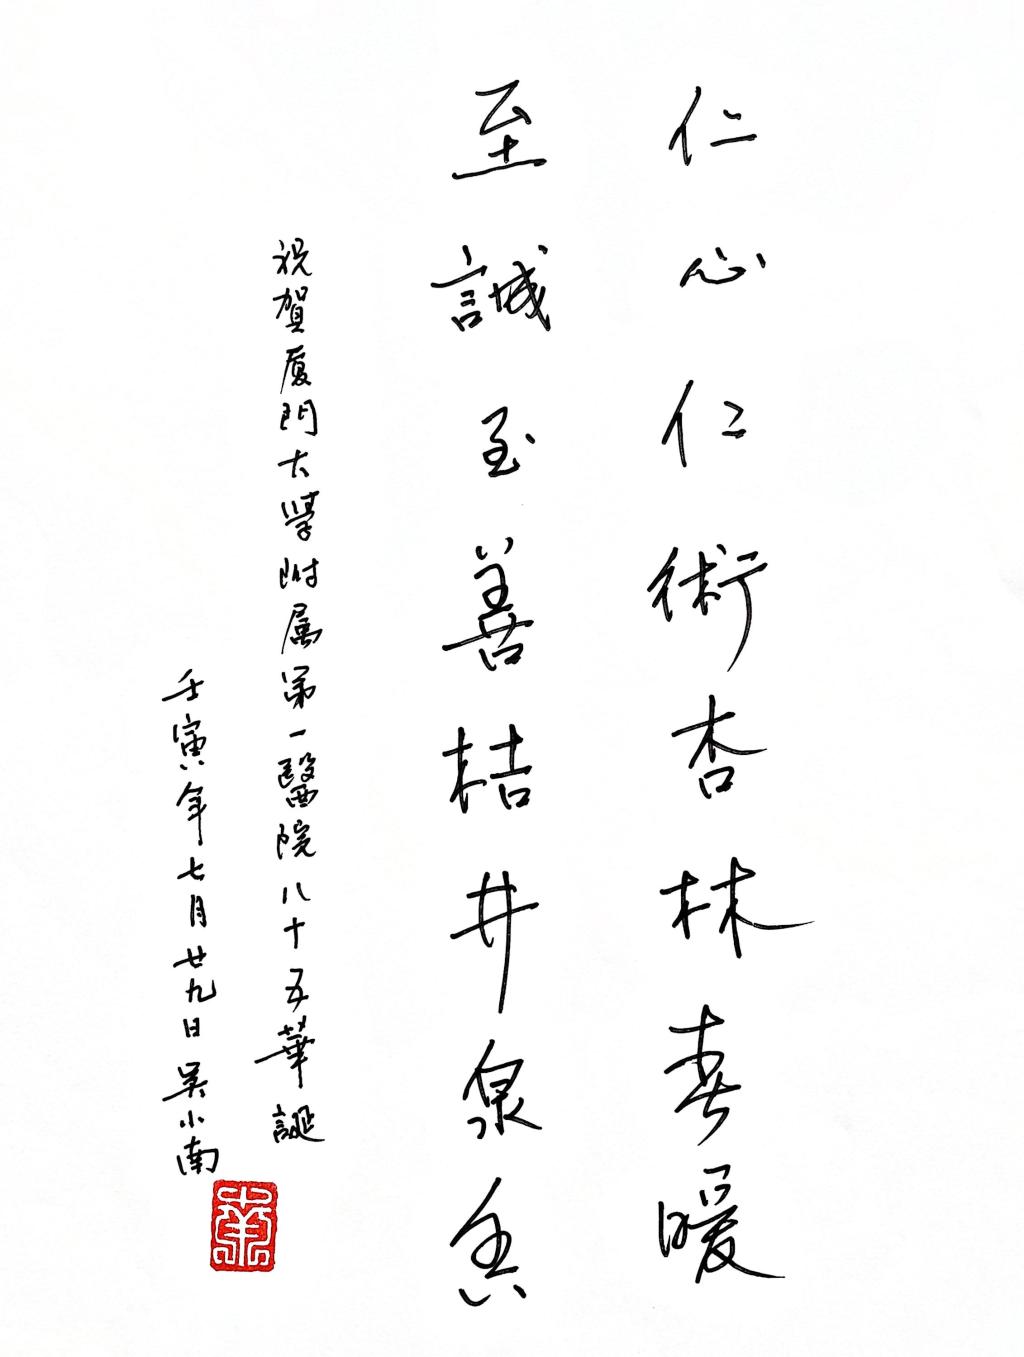 仁心仁術杏林春暖
至誠至善桔井泉香
祝賀厦門大学附属第一醫院八十五華誕
壬寅年七月廿九日吴小南